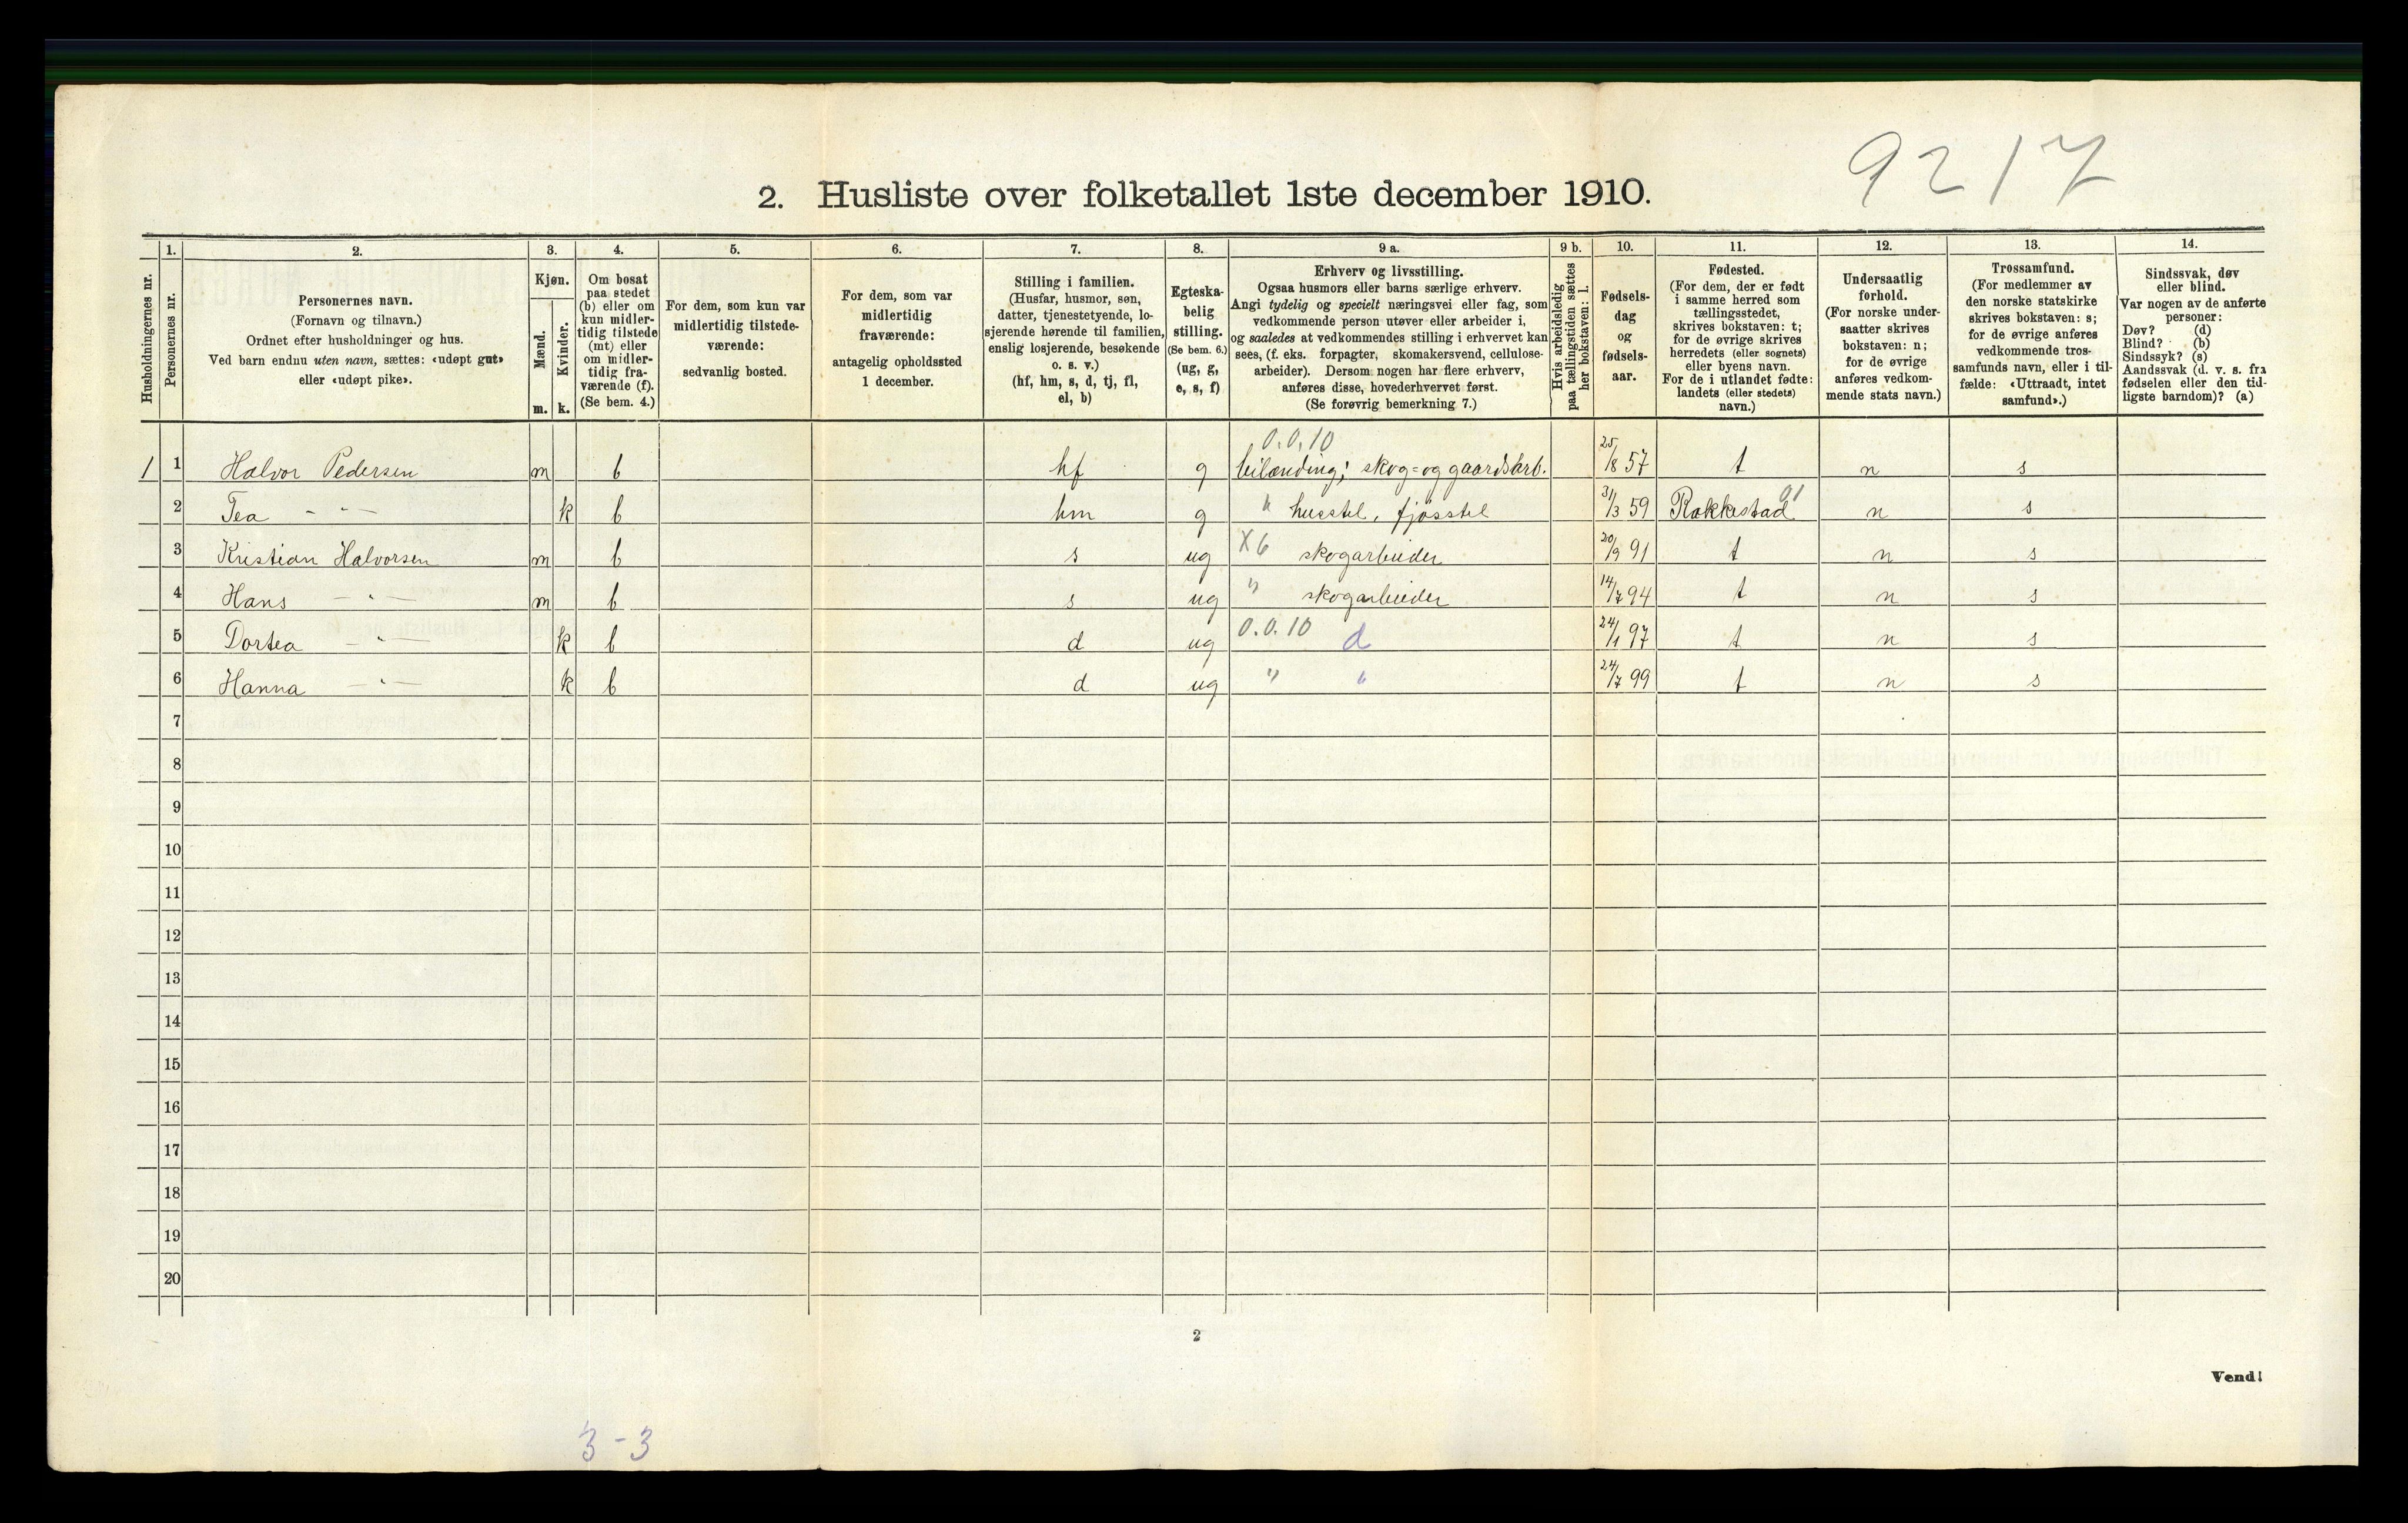 9217
2. Husliste over folketallet 1ste december 1910.
Husholdningernes nr.
1.
Personernes nr.
2.
Personernes navn.
(Fornavn og tilnavn.)
Ordnet efter husholdninger og hus.
Ved barn endnu uten navn, sættes: «udøpt gut»
eller «udøpt pike».
3.
Kjøn.
Mænd.
Kvinder.
m. k.
4.
Om bosat
paa stedet
(b) eller om
kun midler-
tidig tilstede
(mt) eller
om midler-
tidig fra-
værende (f).
(Se bem. 4.)
5.
For dem, som kun var
midlertidig tilstede-
værende:
sedvanlig bosted.
6.
For dem, som var
midlertidig
fraværende:
antagelig opholdssted
1 december.
7.
Stilling i familien.
(Husfar, husmor, søn,
datter, tjenestetyende, lo-
sjerende hørende til familien,
enslig losjerende, besøkende
o. s. v.)
(hf, hm, s, d, tj, fl,
el, b)
8.
Egteska-
belig
stilling.
(Se bem. 6.)
(ug, g,
e, s, f)
9 a.
Erhverv og livsstilling.
Ogsaa husmors eller barns særlige erhverv.
Angi tydelig og specielt næringsvei eller fag, som
vedkommende person utøver eller arbeider i,
og saaledes at vedkommendes stilling i erhvervet kan
sees, (f. eks. forpagter, skomakersvend, cellulose-
arbeider). Dersom nogen har flere erhverv,
anføres disse, hovederhvervet først.
(Se forøvrig bemerkning 7.)
9 b.
Hvis arbeidsledig
paa tællingstiden sættes
her bokstaven: l.
10.
Fødsels-
dag
og
fødsels-
aar.
11.
Fødested.
(For dem, der er født
i samme herred som
tællingsstedet,
skrives bokstaven: t;
for de øvrige skrives
herredets (eller sognets)
eller byens navn.
For de i utlandet fødte:
landets (eller stedets)
navn.)
12.
Undersaatlig
forhold.
(For norske under-
saatter skrives
bokstaven: n;
for de øvrige
anføres vedkom-
mende stats navn.)
13.
Trossamfund.
(For medlemmer av
den norske statskirke
skrives bokstaven: s;
for de øvrige anføres
vedkommende tros-
samfunds navn, eller i til-
fælde: «Uttraadt, intet
samfund».)
14.
Sindssvak, døv
eller blind.
Var nogen av de anførte
personer:
Døv? (d)
Blind? (b)
Sindssyk? (s)
Aandssvak (d. v. s. fra
fødselen eller den tid-
ligste barndom)? (a)
0.0.10
1 1 Halvor Pedersen m b hf g leilænding; skog= og gaardsarb. 25/8 57 t n s
2 Tea - " - k b hm g " husstel, fjösstel 31/3 59 Rakkestad 01 n s
3 Kristian Halvorsen m b s ug X6 skogarbeider 20/9 91 t n s
4 Hans - " - m b s ug " skogarbeider 14/7 94 t n s
5 Dortea - " - k b d ug 0.0.10 d 24/1 97 t n s
6 Hanna - " - k b d ug " " 24/7 99 t n s
7
8
9
10
11
12
13
14
15
16
17
18
19
20
2
Vend!
3-3